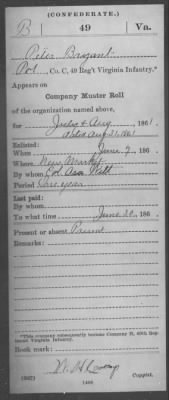 (CONFEDERATE.)
B 49 Va.
Peter Bryant
Pvt, Co. C, 49 Reg't Virginia Infantry.*
Appears on
Company Muster Roll
of the organization named above,
for July & Aug, 1861.
dated Aug 31, 1861
Enlisted:
When June 2, 186
Where New Market
By whom Col. Asa
Period One year
Last paid:
By whom
To what time June 30, 186
Present or absent Present
Remarks:
*This company subsequently became Company H, 49th Regiment Virginia Infantry.
Book mark:
(642)
Copyist.